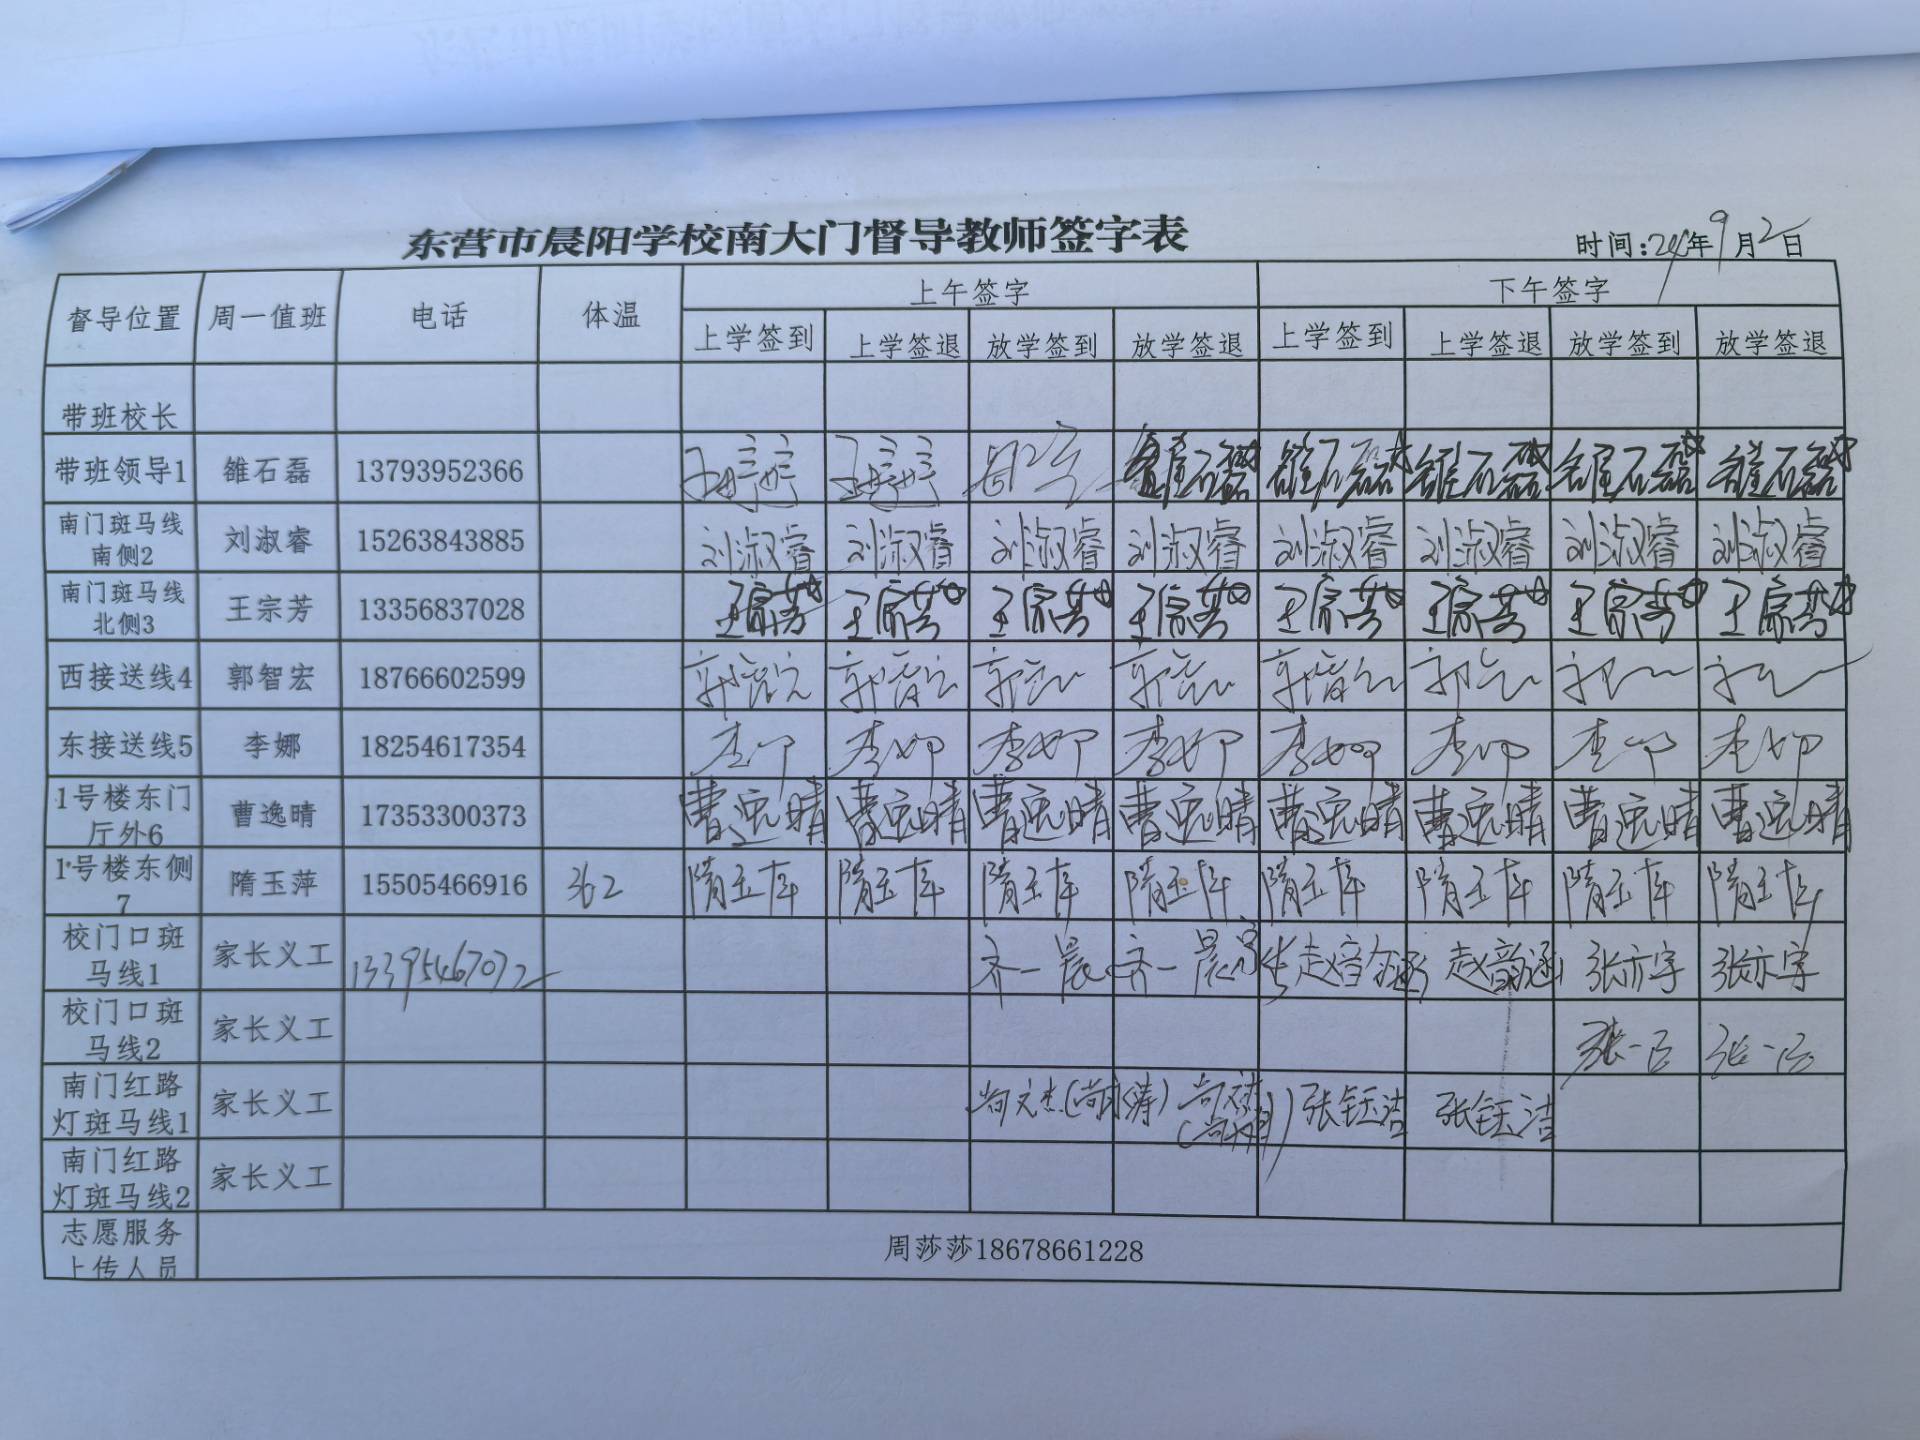 东营市晨阳学校南大门督导教师签字表
时间:24年9月2日
督导位置 周一值班 电话 体温 上午签字 下午签字
上学签到 上学签退 放学签到 放学签退 上学签到 上学签退 放学签到 放学签退
带班校长
带班领导1 雒石磊 13793952366 雒石磊 雒石磊 雒石磊 雒石磊 雒石磊
南门斑马线
南侧2 刘淑睿 15263843885 刘淑睿 刘淑睿 刘淑睿 刘淑睿 刘淑睿 刘淑睿 刘淑睿 刘淑睿
南门斑马线
北侧3 王宗芳 13356837028 王宗芳 王宗芳 王宗芳 王宗芳 王宗芳 王宗芳 王宗芳 王宗芳
西接送线4 郭智宏 18766602599 郭智宏 郭智宏 郭智宏 郭智宏 郭智宏
东接送线5 李娜 18254617354 李娜 李娜 李娜 李娜 李娜 李娜 李娜 李娜
1号楼东门
厅外6 曹逸晴 17353300373 曹逸晴 曹逸晴 曹逸晴 曹逸晴 曹逸晴 曹逸晴 曹逸晴 曹逸晴
1号楼东侧
7 隋玉萍 15505466916 362 隋玉萍 隋玉萍 隋玉萍 隋玉萍 隋玉萍 隋玉萍 隋玉萍 隋玉萍
校门口斑
马线1 家长义工 13395467072 齐一晨 齐一晨 赵韵涵 赵韵涵 张亦宇 张亦宇
校门口斑
马线2 家长义工 张一 张一
南门红路
灯斑马线1 家长义工 尚文杰 尚文杰 张钰洁 张钰洁
南门红路
灯斑马线2 家长义工
志愿服务
上传人员 周莎莎18678661228